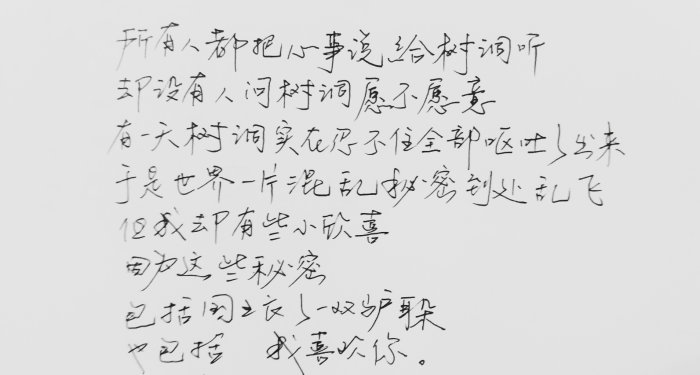 所有人都把心事说给树洞听
却没有人问树洞愿不愿意
有一天树洞实在忍不住全部呕吐了出来
于是世界一片混乱秘密到处乱飞
但我却有些小欣喜
因为这些秘密
包括国王衣了一双驴耳朵
也包括 我喜欢你。